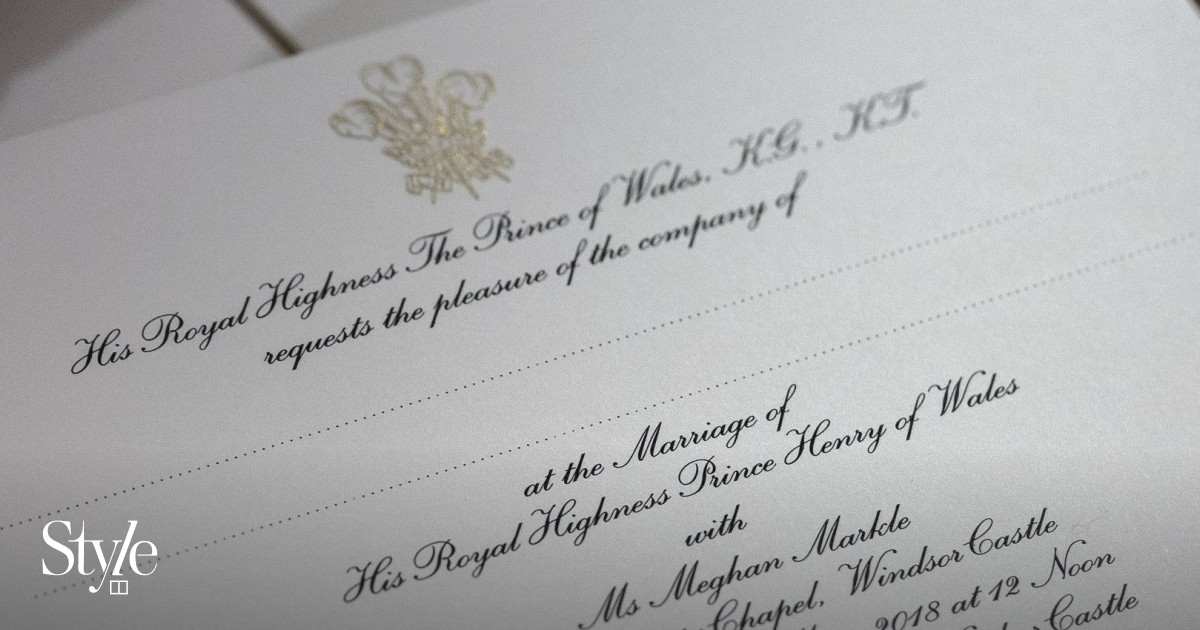 His Royal Highness The Prince of Wales, K.G., K.T.
requests the pleasure of the company of
at the Marriage of
His Royal Highness Prince Henry of Wales
with
Ms Meghan Markle
Chapel, Windsor Castle
2018 at 12 Noon
Castle
Style